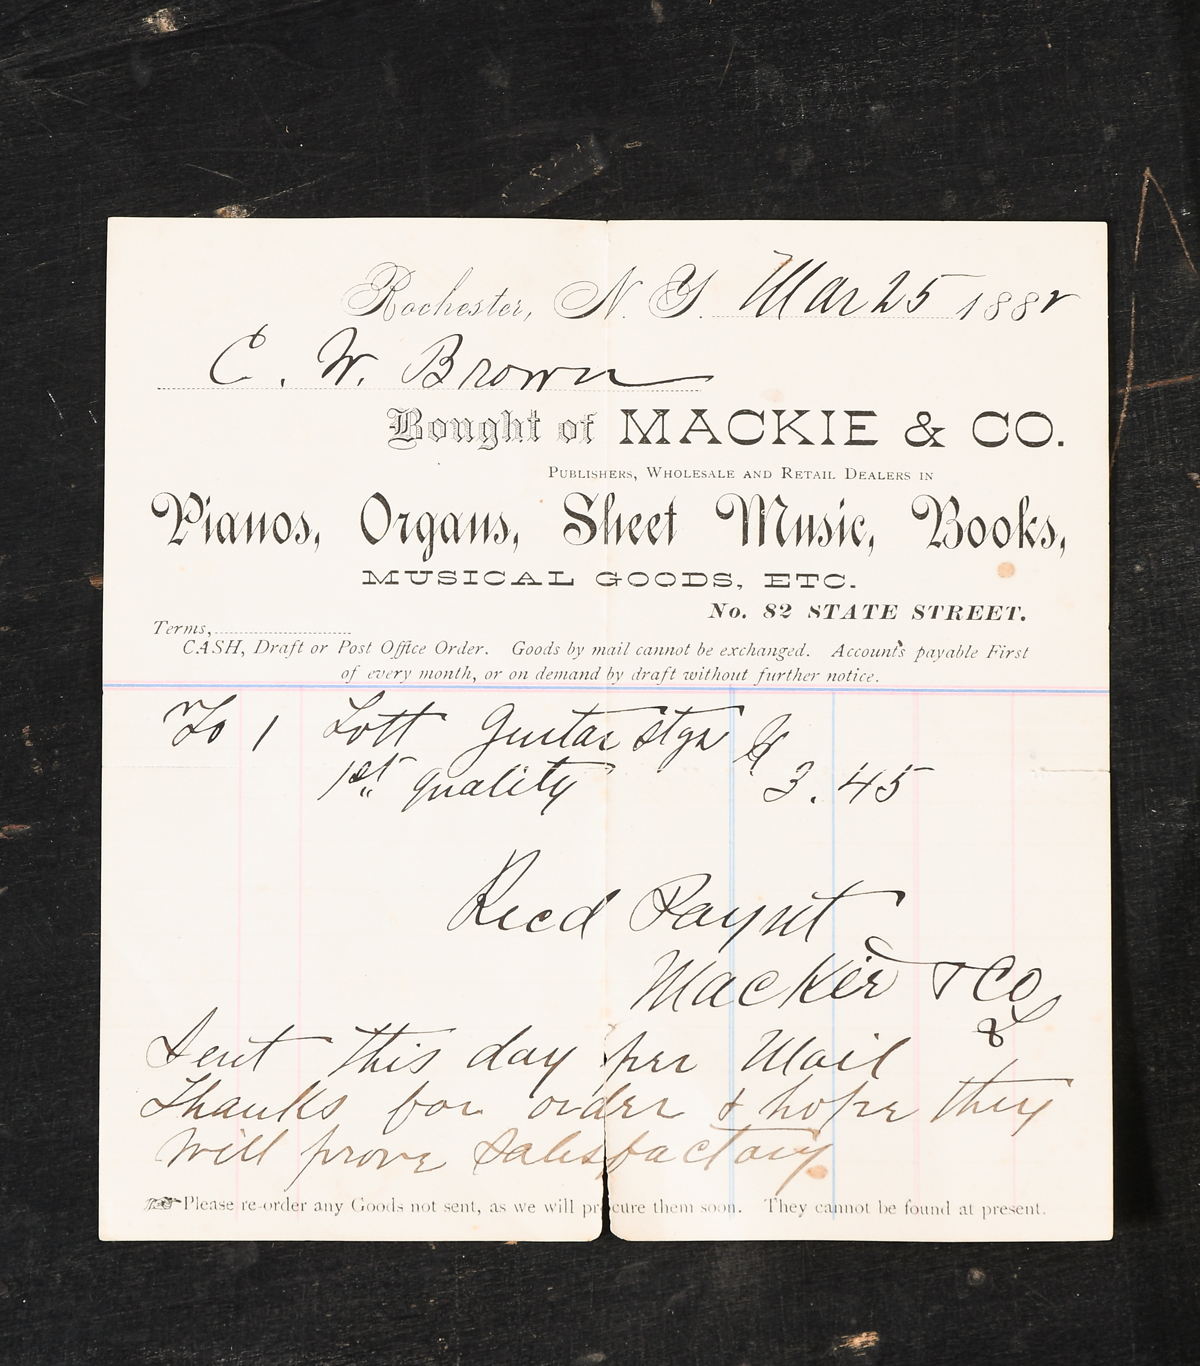 Rochester, N. Y. Mar 25 1882
C. W. Brown
Bought of MACKIE & CO.
PUBLISHERS, WHOLESALE AND RETAIL DEALERS IN
Pianos, Organs, Sheet Music, Books,
MUSICAL GOODS, ETC.
No. 82 STATE STREET.
Terms,
CASH, Draft or Post Office Order. Goods by mail cannot be exchanged. Accounts payable First
of every month, or on demand by draft without further notice.
To 1 Lott Guitar stgs
1st quality 3.45
Recd Paymt
Mackie & Co
Sent this day per Mail
Thanks for order & hope they
will prove satisfactory
Please re-order any Goods not sent, as we will procure them soon. They cannot be found at present.